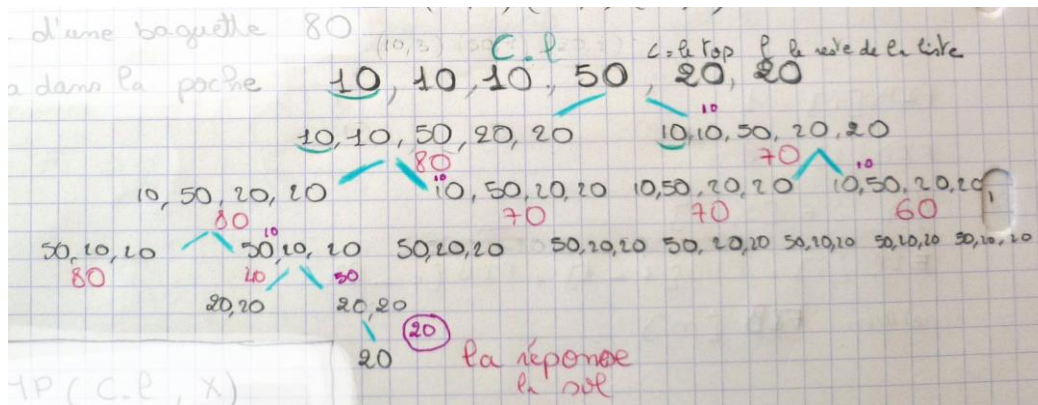 d'une baguette 80
C.l c = le top l le reste de la liste
a dans la poche 10, 10, 10, 50, 20, 20
10
10, 10, 50, 20, 20 10, 10, 50, 20, 20
80 70
10 10
10, 50, 20, 20 10, 50, 20, 20 10, 50, 20, 20 10, 50, 20, 20
80 70 70 60
10
50, 20, 20 50, 20, 20 50, 20, 20 50, 20, 20 50, 20, 20 50, 20, 20 50, 20, 20 50, 20, 20
80 50
20, 20 20, 20
20
20 la réponse
la sol
(C.l, X)